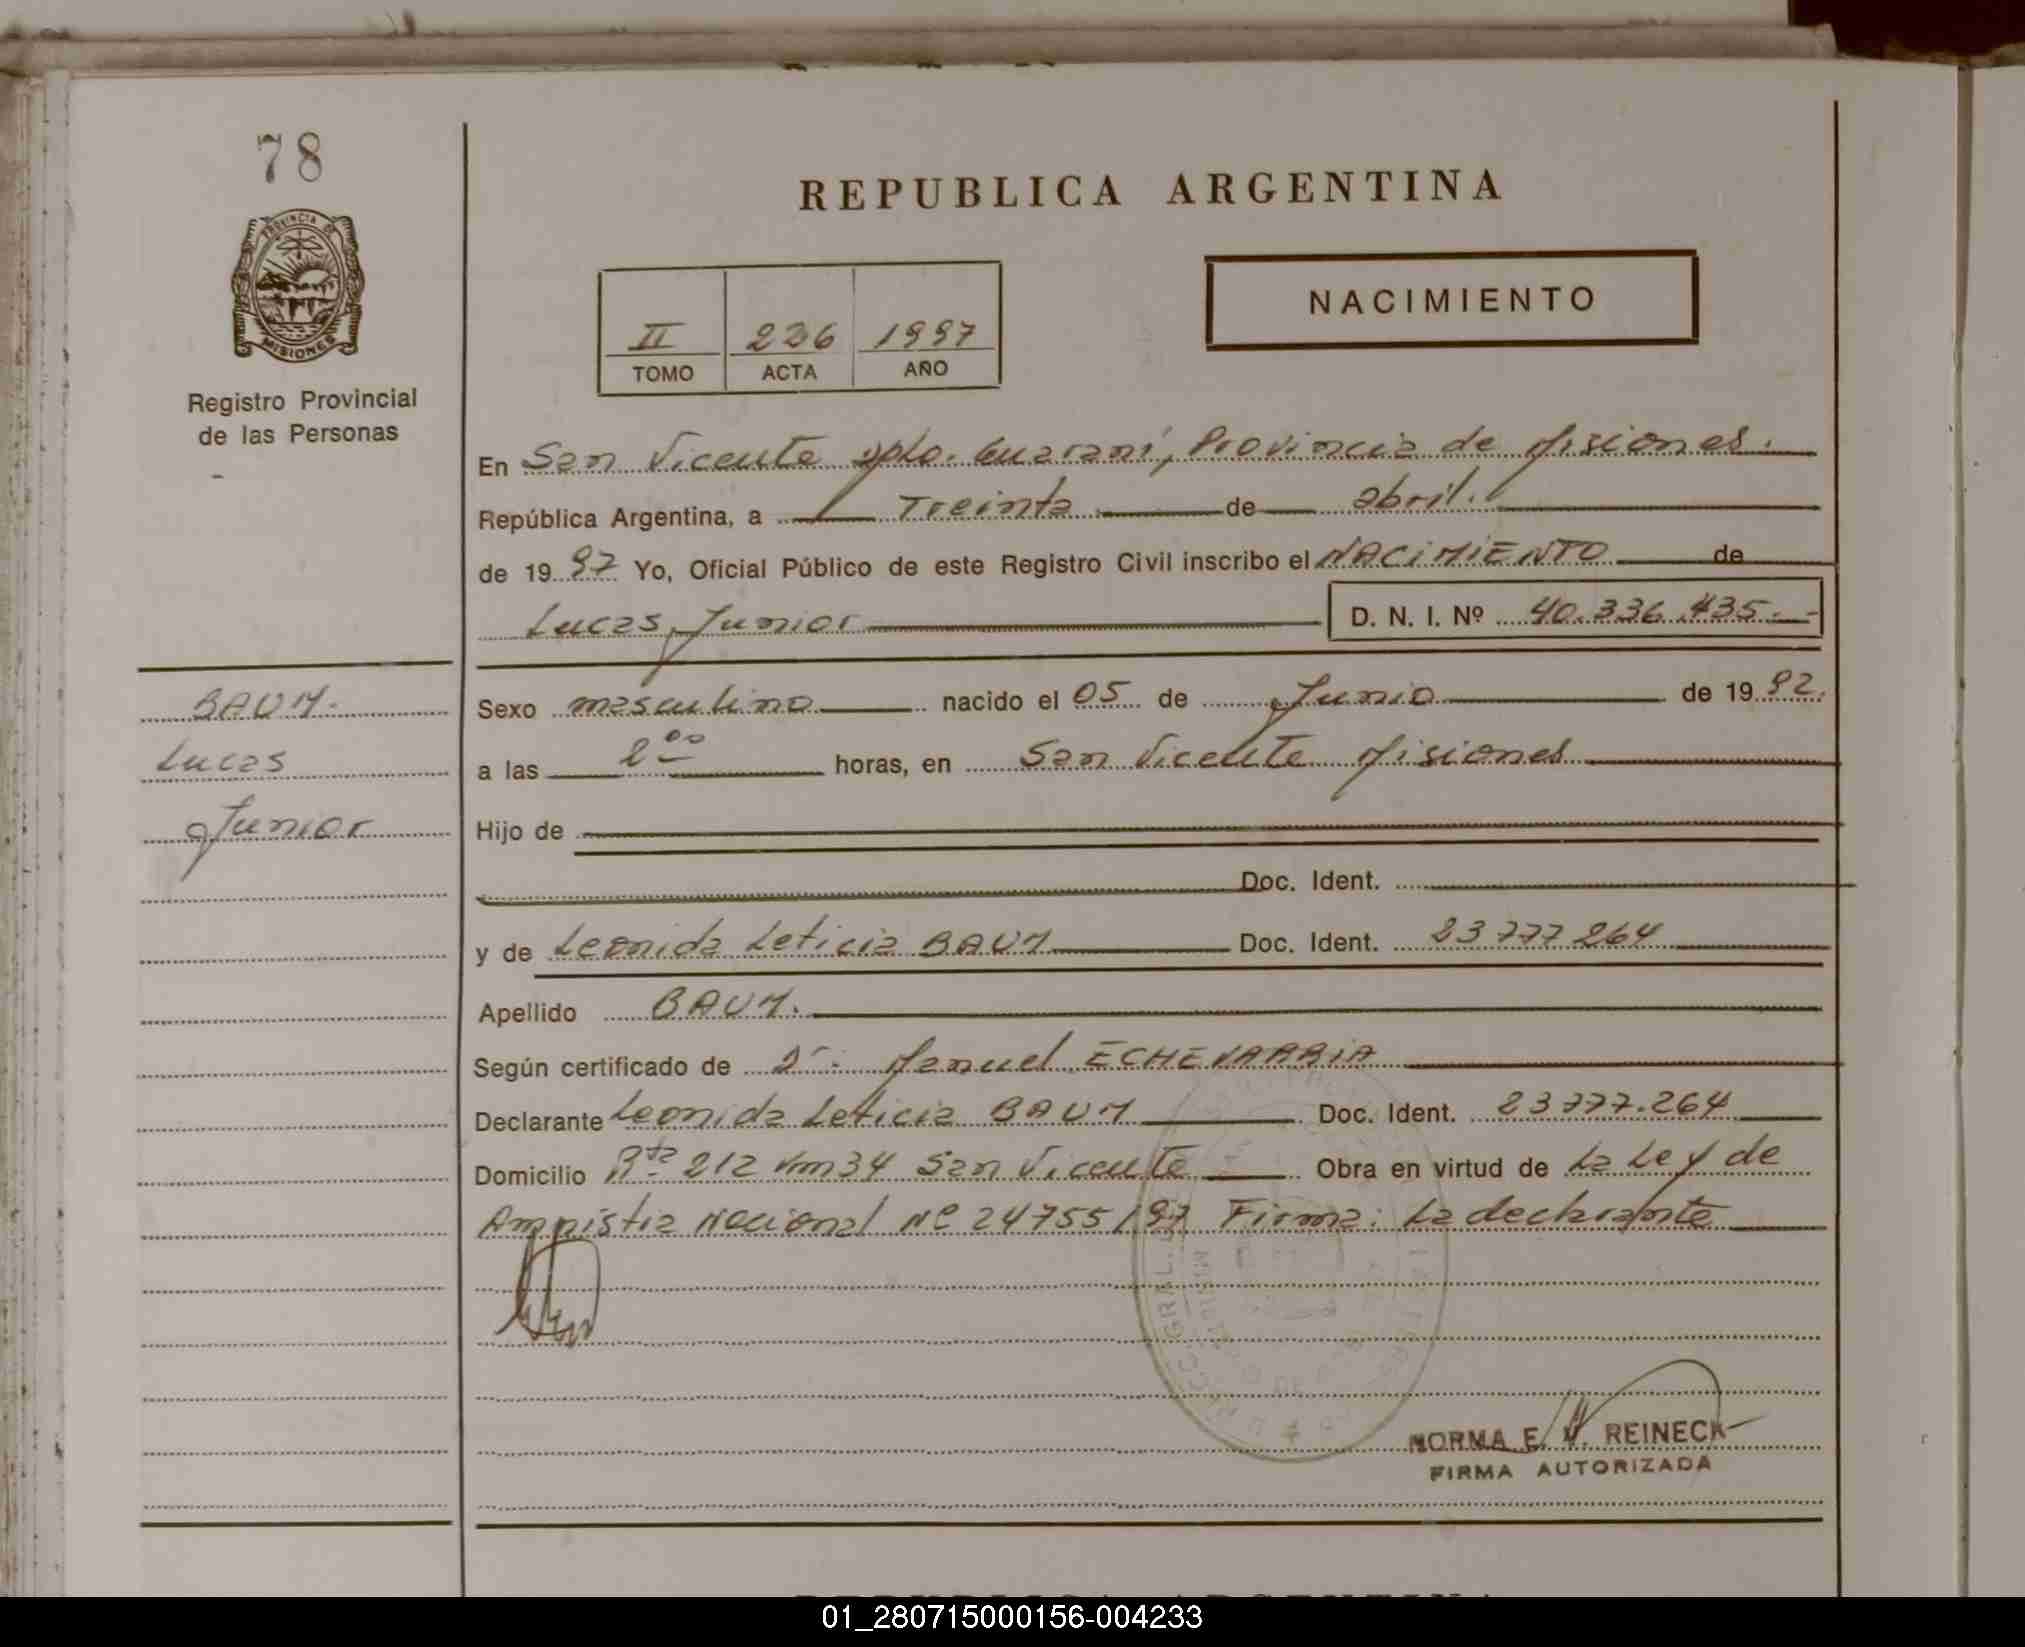 78
PROVINCIA DE
MISIONES
Registro Provincial
de las Personas
REPUBLICA ARGENTINA
NACIMIENTO
II 236 1997
TOMO ACTA AÑO
En San Vicente Dpto. Guaraní, Provincia de Misiones.
República Argentina, a Treinta de abril.
de 1997 Yo, Oficial Público de este Registro Civil inscribo el NACIMIENTO de
Lucas Junior D. N. I. Nº 40.336.435.-
BAUM.
Lucas
Junior
Sexo masculino nacido el 05 de Junio de 1992.
a las 2 00 horas, en San Vicente Misiones
Hijo de
Doc. Ident.
y de Leonida Leticia BAUM Doc. Ident. 23777264
Apellido BAUM.
Según certificado de Dr. Manuel ECHEVARRIA
Declarante Leonida Leticia BAUM Doc. Ident. 23777.264
Domicilio Rta 212 Km 34 San Vicente Obra en virtud de La Ley de
Amnistia Nacional Nº 24755/97 Firma: La declarante
NORMA E. REINECK
FIRMA AUTORIZADA
01_280715000156-004233